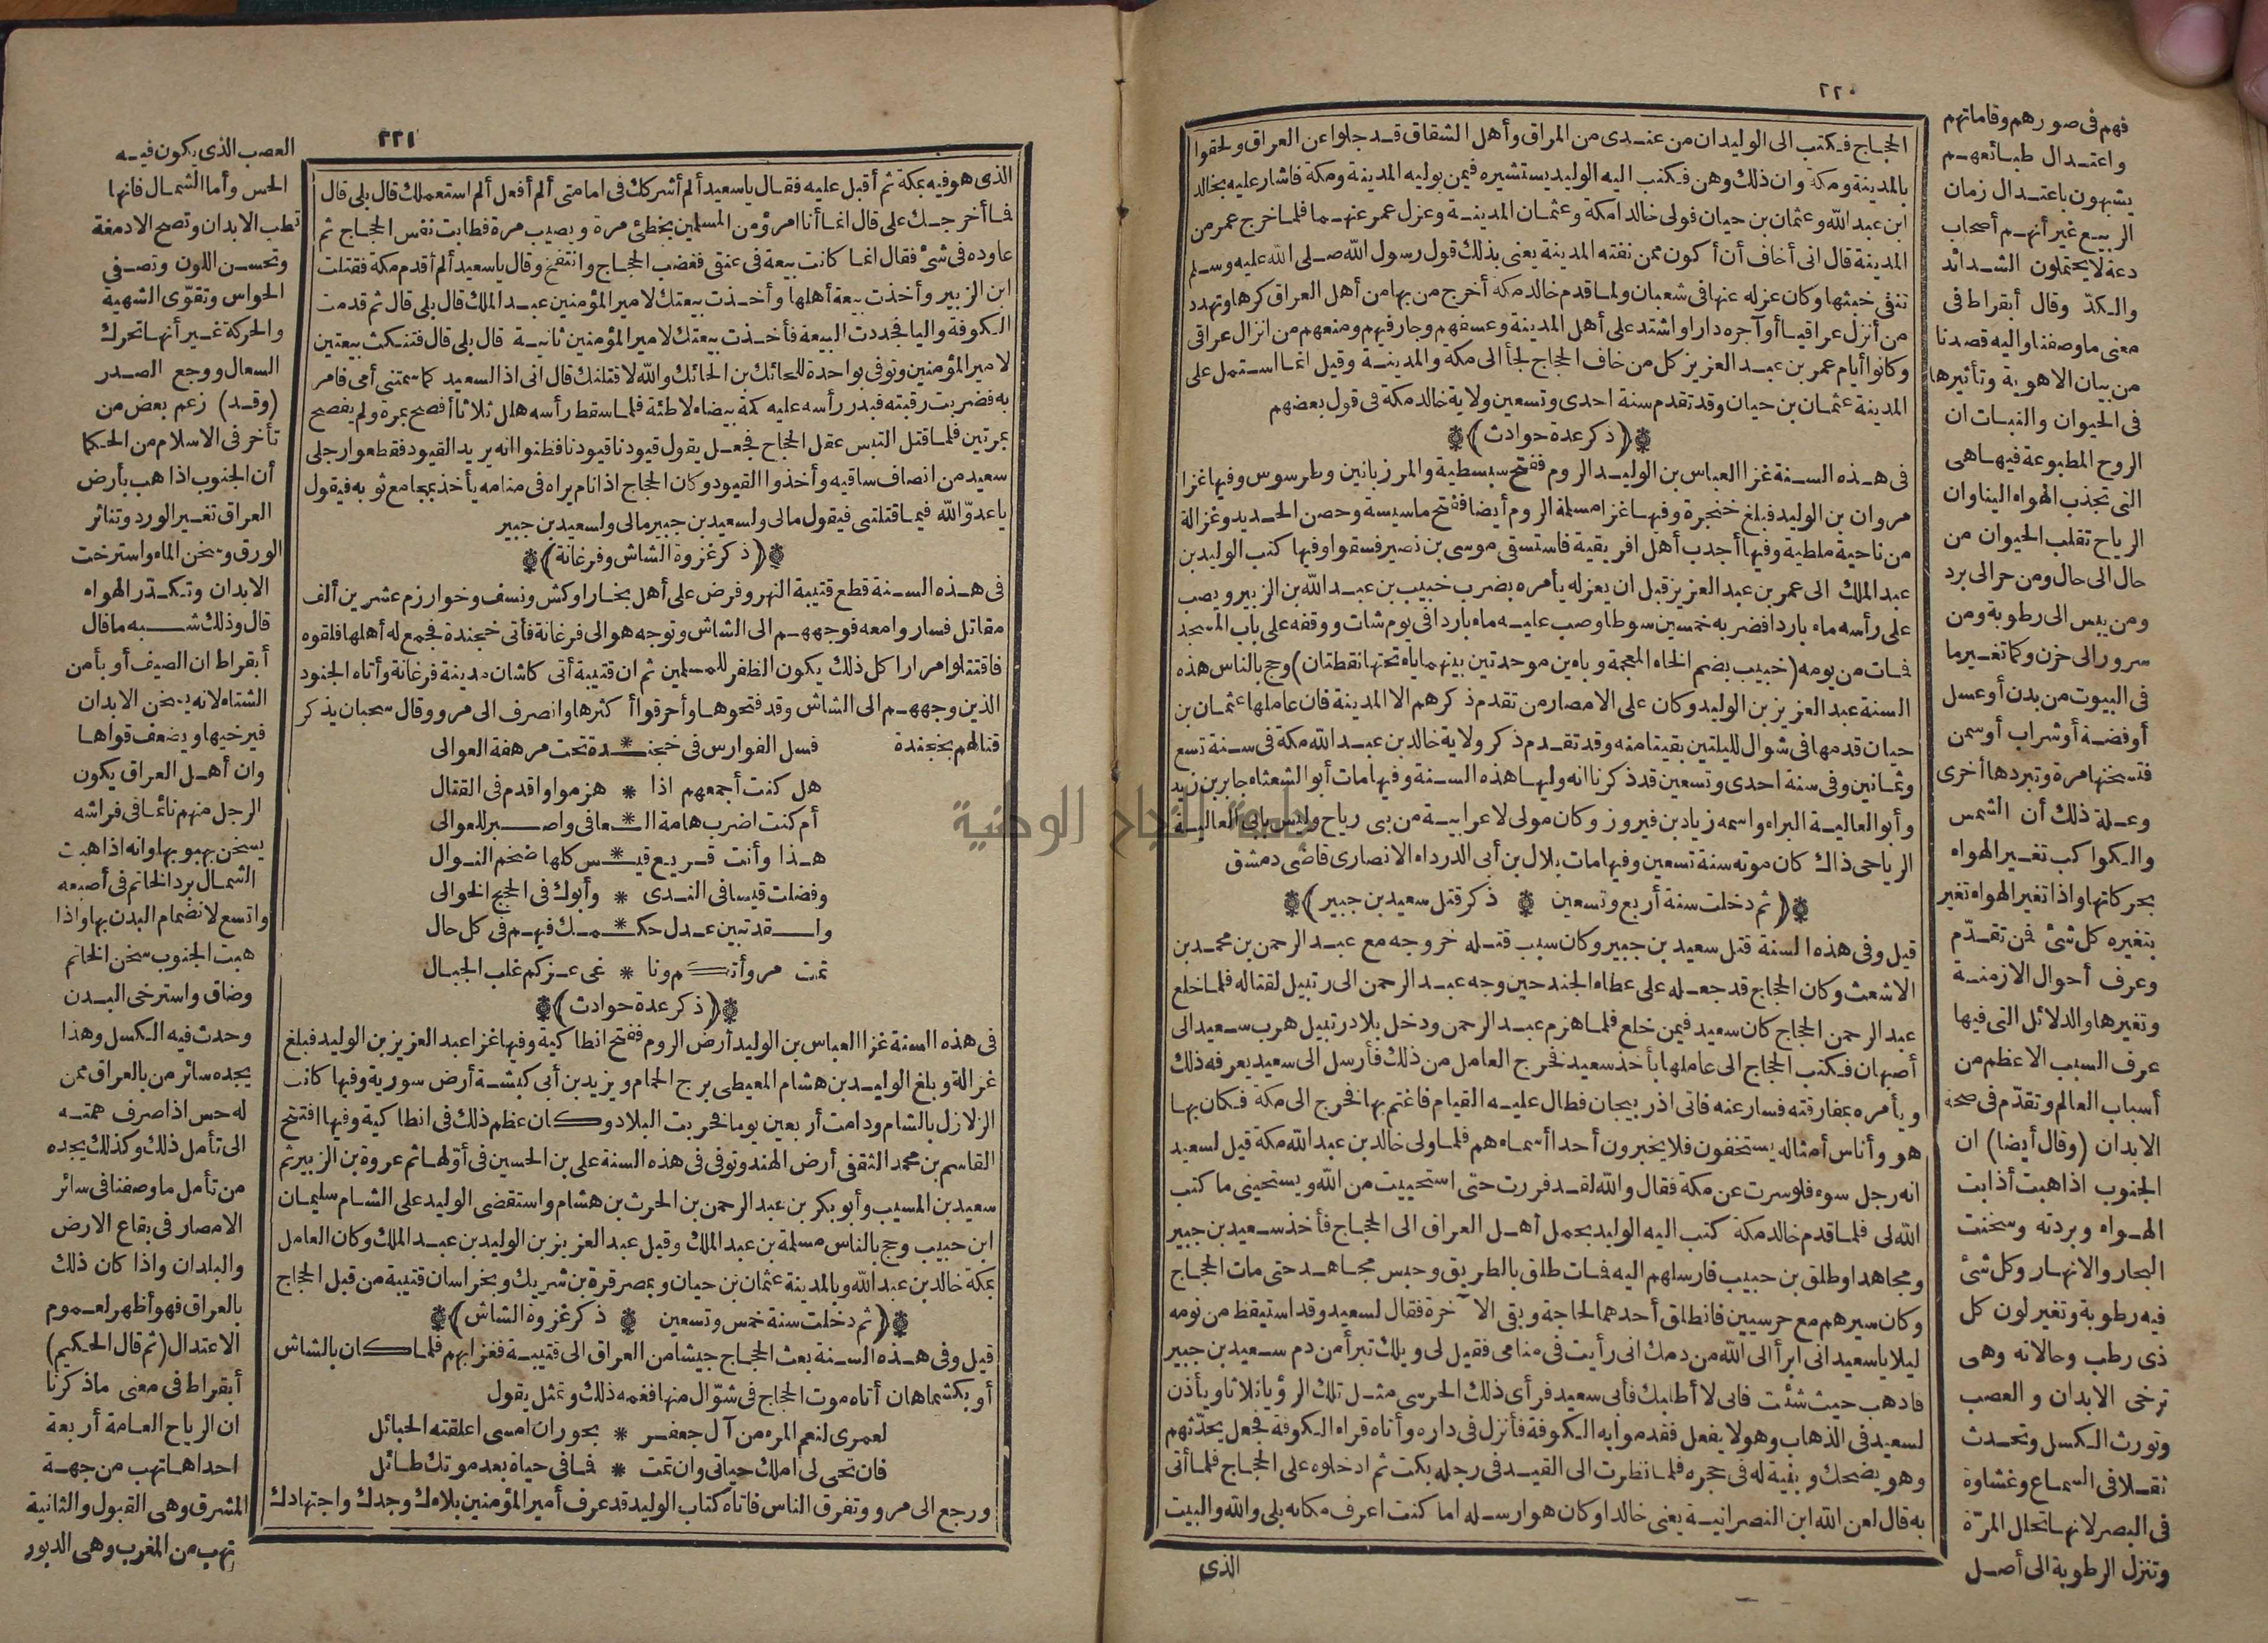 ٢٢٠
الحجاج فكتب الى الوليد ان من عندى من المراق وأهل الشقاق قد جلوا عن العراق ولحقوا
بالمدينة ومكة وان ذلك وهن فكتب اليه الوليد يستشيره فيمن يوليه المدينة ومكة فاشار عليه بخالد
ابن عبد الله وعثمان بن حيان فولى خالدا مكة وعثمان المدينة وعزل عمر عنهما فلما خرج عمر من
المدينة قال انى أخاف أن أكون ممن نفته المدينة يعنى بذلك قول رسول الله صلى الله عليه وسلم
تنفى خبثها وكان عزله عنها فى شعبان ولما قدم خالد مكة أخرج من بها من أهل العراق كرها وتهدد
من أنزل عراقيا أو آجره دارا واشتد على أهل المدينة وعسفهم وجار فيهم ومنعهم من انزال عراقى
وكانوا أيام عمر بن عبد العزيز كل من خاف الحجاج لجأ الى مكة والمدينة وقيل انما استمل على
المدينة عثمان بن حيان وقد تقدم سنة احدى وتسعين ولاية خالد مكة فى قول بعضهم
﴿ذكر عدة حوادث﴾
فى هذه السنة غزا العباس بن الوليد الروم ففتح سبسطية والمرزبانين وطرسوس وفيها غزا
مروان بن الوليد فبلغ خنجرة وفيها غزا مسلمة الروم أيضا ففتح ماسيسة وحصن الحديد وغزالة
من ناحية ملطية وفيها أجدب أهل افريقية فاستسقى موسى بن نصير فسقوا وفيها كتب الوليد بن
عبد الملك الى عمر بن عبد العزيز قبل ان يعزله يأمره بضرب خبيب بن عبد الله بن الزبير ويصب
على رأسه ماء باردا فضربه خمسين سوطا وصب عليه ماء باردا فى يوم شات ووقفه على باب المسجد
فمات من يومه (خبيب بضم الخاء المعجمة وباءين موحدتين بينهما ياء تحتها نقطتان) وحج بالناس هذه
السنة عبد العزيز بن الوليد وكان على الامصار من تقدم ذكرهم الا المدينة فان عاملها عثمان بن
حيان قدمها فى شوال لليلتين بقيتا منه وقد تقدم ذكر ولاية خالد بن عبد الله مكة فى سنة تسع
وثمانين وفى سنة احدى وتسعين قد ذكرنا انه وليها هذه السنة وفيها مات أبو الشعثاء جابر بن زيد
وأبو العالية البراء واسمه زياد بن فيروز وكان مولى لاعرابية من بنى رياح وليس بابى العالية
الرياحى ذاك كان موته سنة تسعين وفيها مات بلال بن أبى الدرداء الانصارى قاضى دمشق
﴿ثم دخلت سنة أربع وتسعين ۞ ذكر قتل سعيد بن جبير﴾
قيل وفى هذه السنة قتل سعيد بن جبير وكان سبب قتله خروجه مع عبد الرحمن بن محمد بن
الاشعث وكان الحجاج قد جعله على عطاء الجند حين وجه عبد الرحمن الى رتبيل لقتاله فلما خلع
عبد الرحمن الحجاج كان سعيد فيمن خلع فلما هزم عبد الرحمن ودخل بلاد رتبيل هرب سعيد الى
أصبهان فكتب الحجاج الى عاملها بأخذ سعيد فخرج العامل من ذلك فأرسل الى سعيد يعرفه ذلك
ويأمره بمفارقته فسار عنه فاتى اذربيجان فطال عليه القيام فاغتم بها فخرج الى مكة فكان بها
هو وأناس أمثاله يستخفون فلا يخبرون أحدا أسماءهم فلما ولى خالد بن عبد الله مكة قيل لسعيد
انه رجل سوء فلو سرت عن مكة فقال والله لقد فررت حتى استحييت من الله ويستحيينى ما كتب
الله لى فلما قدم خالد مكة كتب اليه الوليد بحمل أهل العراق الى الحجاج فأخذ سعيد بن جبير
ومجاهدا وطلق بن حبيب فارسلهم اليه فمات طلق بالطريق وحبس مجاهد حتى مات الحجاج
وكان سيرهم مع حرسيين فانطلق أحدهما لحاجة وبقى الآخرة فقال لسعيد وقد استيقظ من نومه
ليلا يا سعيد انى ابرأ الى الله من دمك انى رأيت فى منامى فقيل لى ويلك تبرأ من دم سعيد بن جبير
فاذهب حيث شئت فانى لا أطلبك فأبى سعيد فرأى ذلك الحرسى مثل تلك الرؤيا ثلاثا ويأذن
لسعيد فى الذهاب وهو لا يفعل فقدموا به الكوفة فأنزل فى داره وأتاه قراء الكوفة فجعل يحدّثهم
وهو يضحك وبنية له فى حجره فلما نظرت الى القيد فى رجله بكت ثم ادخلوه على الحجاج فلما أتى
به قال لعن الله ابن النصرانية يعنى خالدا وكان هو ارسله اما كنت اعرف مكانه بلى والله والبيت
الذى
فهم فى صورهم وقاماتهم
واعتدال طبائعهم
يشبهون باعتدال زمان
الربيع غير أنهم أصحاب
دعة لا يحتملون الشدائد
والكدّ وقال أبقراط فى
معنى ما وصفنا واليه قصدنا
من بيان الاهوية وتأثيرها
فى الحيوان والنبات ان
الروح المطبوعة فيها هى
التى تجذب الهواء الينا وان
الرياح تقلب الحيوان من
حال الى حال ومن حر الى برد
ومن يبس الى رطوبة ومن
سرور الى حزن وكما تغير ما
فى البيوت من بدن أو عسل
أو فضة أو شراب أو سمن
فتسخنها مرة وتبردها أخرى
وعلة ذلك أن الشمس
والكواكب تغير الهواء
بحركاتها واذا تغير الهواء تغير
بتغيره كل شئ فمن تقدّم
وعرف أحوال الازمنة
وتغيرها والدلائل التى فيها
عرف السبب الاعظم من
أسباب العالم وتقدّم فى صحة
الابدان (وقال أيضا) ان
الجنوب اذا هبت أذابت
الهواء وبردته وسخنت
البحار والانهار وكل شئ
فيه رطوبة وتغير لون كل
ذى رطب وحالاته وهى
ترخى الابدان والعصب
وتورث الكسل وتحدث
ثقلا فى السماع وغشاوة
فى البصر لانها تحلل المرّة
وتنزل الرطوبة الى أصل
٢٢١
الذى هو فيه بمكة ثم أقبل عليه فقال يا سعيد ألم أشركك فى امامتى ألم أفعل ألم استعملك قال بلى قال
فما أخرجك على قال انما أنا امرؤ من المسلمين يخطئ مرة ويصيب مرة فطابت نفس الحجاج ثم
عاوده فى شئ فقال انما كانت بيعة فى عنقى فغضب الحجاج وانتفخ وقال يا سعيد ألم أقدم مكة فقتلت
ابن الزبير وأخذت بيعة أهلها وأخذت بيعتك لامير المؤمنين عبد الملك قال بلى قال ثم قدمت
الكوفة واليا فجددت البيعة فأخذت بيعتك لامير المؤمنين ثانية قال بلى قال فتنكث بيعتين
لامير المؤمنين وتوفى بواحدة للحائك بن الحائك والله لاقتلنك قال انى اذا لسعيد كما سمتنى أمى فامر
به فضربت رقبته فبدر رأسه عليه كمة بيضاء لاطئة فلما سقط رأسه هلل ثلاثا أفصح بمرة ولم يفصح
بمرتين فلما قتل التبس عقل الحجاج فجعل يقول قيودنا قيودنا فظنوا انه يريد القيود فقطعوا رجلى
سعيد من انصاف ساقيه وأخذوا القيود وكان الحجاج اذا نام يراه فى منامه يأخذ بمجامع ثوبه فيقول
يا عدوّ الله فيما قتلتنى فيقول مالى ولسعيد بن جبير مالى ولسعيد بن جبير
﴿ذكر غزوة الشاش وفرغانة﴾
فى هذه السنة قطع قتيبة النهر وفرض على أهل بخارا وكش ونسف وخوارزم عشرين ألف
مقاتل فساروا معه فوجههم الى الشاش وتوجه هو الى فرغانة فأتى خجندة فجمع له أهلها فلقوه
فاقتتلوا مرارا كل ذلك يكون الظفر للمسلمين ثم ان قتيبة أتى كاشان مدينة فرغانة وأتاه الجنود
الذين وجههم الى الشاش وقد فتحوها وأحرقوا أكثرها وانصرف الى مرو وقال سحبان يذكر
قتالهم بخجندة فسل الفوارس فى خجن * دة تحت مرهفة العوالى
هل كنت أجمعهم اذا * هزموا واقدم فى القتال
أم كنت اضرب هامة الـ * عافى واصبر للعوالى
هذا وأنت قريع قيـ * س كلها ضخم النوال
وفضلت قيسا فى الندى * وأبوك فى الحجج الخوالى
ولقد تبين عدل حكـ * مك فيهم فى كل حال
تمت مروأتهم ونا * غى عزكم غلب الجبال
﴿ذكر عدة حوادث﴾
فى هذه السنة غزا العباس بن الوليد أرض الروم ففتح انطاكية وفيها غزا عبد العزيز بن الوليد فبلغ
غزالة وبلغ الوليد بن هشام المعيطى برج الحمام ويزيد بن أبى كبشة أرض سورية وفيها كانت
الزلازل بالشام ودامت أربعين يوما فخربت البلاد وكان عظم ذلك فى انطاكية وفيها افتتح
القاسم بن محمد الثقفى أرض الهند وتوفى فى هذه السنة على بن الحسين فى أوّلها ثم عروة بن الزبير ثم
سعيد بن المسيب وأبو بكر بن عبد الرحمن بن الحرث بن هشام واستقضى الوليد على الشام سليمان
ابن حبيب وحج بالناس مسلمة بن عبد الملك وقيل عبد العزيز بن الوليد بن عبد الملك وكان العامل
بمكة خالد بن عبد الله وبالمدينة عثمان بن حيان وبمصر قرة بن شريك وبخراسان قتيبة من قبل الحجاج
﴿ثم دخلت سنة خمس وتسعين ۞ ذكر غزوة الشاش﴾
قيل وفى هذه السنة بعث الحجاج جيشا من العراق الى قتيبة فغزا بهم فلما كان بالشاش
أو بكشماهان أتاه موت الحجاج فى شوّال منها فغمه ذلك وتمثل يقول
لعمرى لنعم المرء من آل جعفر * بحوران امسى اعلقته الحبائل
فان تحى لى املك حياتى وان تمت * فما فى حياة بعد موتك طائل
ورجع الى مرو وتفرق الناس فاتاه كتاب الوليد قد عرف أمير المؤمنين بلاءك وجدك واجتهادك
العصب الذى يكون فيه
الحس وأما الشمال فانها
تطب الابدان وتصح الادمغة
وتحسن اللون وتصفى
الحواس وتقوّى الشهية
والحركة غير أنها تحرك
السعال ووجع الصدر
(وقد) زعم بعض من
تأخر فى الاسلام من الحكما
أن الجنوب اذا هب بأرض
العراق تغير الورد وتناثر
الورق وسخن الماء واسترخت
الابدان وتكدّر الهواء
قال وذلك شبه ما قال
أبقراط ان الصيف أوبأ من
الشتاء لانه يسخن الابدان
فيرخيها ويضعف قواها
وان أهل العراق يكون
الرجل منهم نائما فى فراشه
يسخن بهبوبها وانه اذا هبت
الشمال برد الخاتم فى أصبعه
واتسع لانضمام البدن بها واذا
هبت الجنوب سخن الخاتم
وضاق واسترخى البدن
وحدث فيه الكسل وهذا
يجده سائر من بالعراق ممن
له حس اذا صرف همته
الى تأمل ذلك وكذلك يجده
من تأمل ما وصفنا فى سائر
الامصار فى بقاع الارض
والبلدان واذا كان ذلك
بالعراق فهو أظهر لعموم
الاعتدال (ثم قال الحكيم)
أبقراط فى معنى ما ذكرنا
ان الرياح العامة أربعة
احداها تهب من جهة
المشرق وهى القبول والثانية
تهب من المغرب وهى الدبور